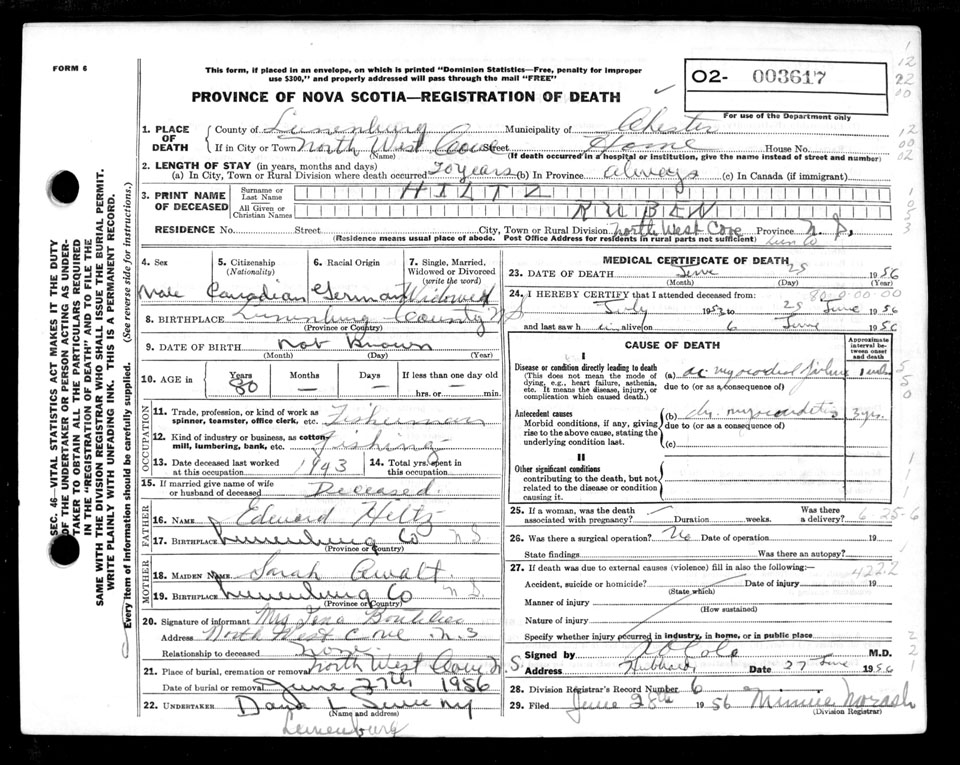 FORM 6
This form, if placed in an envelope, on which is printed "Dominion Statistics—Free, penalty for improper
use $300," and properly addressed will pass through the mail "FREE"
O2- 003617
For use of the Department only
PROVINCE OF NOVA SCOTIA—REGISTRATION OF DEATH
1. PLACE OF DEATH
County of Lunenburg Municipality of Chester
If in City or Town North West Cove Street Home House No.
(Name) (If death occurred in a hospital or institution, give the name instead of street and number)
2. LENGTH OF STAY (in years, months and days)
(a) In City, Town or Rural Division where death occurred 70 years (b) In Province always (c) In Canada (if immigrant)
3. PRINT NAME OF DECEASED
Surname or Last Name HILTZ
All Given or Christian Names RUBEN
RESIDENCE No. Street City, Town or Rural Division North West Cove Province N.S.
(Residence means usual place of abode. Post Office Address for residents in rural parts not sufficient) Lun Co
4. Sex
Male
5. Citizenship (Nationality)
Canadian
6. Racial Origin
German
7. Single, Married, Widowed or Divorced (write the word)
Widowed
8. BIRTHPLACE Lunenburg County NS
(Province or Country)
9. DATE OF BIRTH not known
(Month) (Day) (Year)
10. AGE IN Years 80 Months — Days — If less than one day — hrs. or min.
OCCUPATION
11. Trade, profession, or kind of work as spinner, teamster, office clerk, etc. Fisherman
12. Kind of industry or business, as cotton mill, lumbering, bank, etc. Fishing
13. Date deceased last worked at this occupation 1943
14. Total yrs. spent in this occupation
15. If married give name of wife or husband of deceased Deceased
FATHER
16. NAME Edward Hiltz
17. BIRTHPLACE Lunenburg Co N.S
(Province or Country)
MOTHER
18. MAIDEN NAME Sarah Awalt
19. BIRTHPLACE Lunenburg Co N.S
(Province or Country)
20. Signature of informant Mrs
Address North West Cove N.S
Relationship to deceased None
21. Place of burial, cremation or removal North West Cove N.S.
Date of burial or removal June 27th 1956
22. UNDERTAKER
(Name and address)
Lunenburg
MEDICAL CERTIFICATE OF DEATH
23. DATE OF DEATH June 25 1956
(Month) (Day)
24. I HEREBY CERTIFY that I attended deceased from 80-0-00-00
July 1953 to 25 June 1956
and last saw him alive on 6 June 1956
CAUSE OF DEATH
Approximate interval between onset and death
I
Disease or condition directly leading to death
(This does not mean the mode of dying, e.g., heart failure, asthenia, etc. It means the disease, injury, or complication which caused death.)
(a) ac myocardial failure
due to (or as a consequence of)
Antecedent causes
Morbid conditions, if any, giving rise to the above cause, stating the underlying condition last.
(b) chr. myocarditis 3 yrs.
due to (or as a consequence of)
(c)
II
Other significant conditions
contributing to the death, but not related to the disease or condition causing it.
25. If a woman, was the death associated with pregnancy? Duration weeks. Was there a delivery? 6-25-6
26. Was there a surgical operation? No Date of operation 19
State findings Was there an autopsy?
27. If death was due to external causes (violence) fill in also the following: 422.2
Accident, suicide or homicide? Date of injury 19
(State which)
Manner of injury
(How sustained)
Nature of injury
Specify whether injury occurred in industry, in home, or in public place
Signed by M.D.
Address Hubbards Date 27 June 1956
28. Division Registrar's Record Number 6
29. Filed June 28th 1956 Minnie
(Division Registrar)
SEC. 46 VITAL STATISTICS ACT MAKES IT THE DUTY
OF THE UNDERTAKER OR PERSON ACTING AS UNDERTAKER
TO OBTAIN ALL THE PARTICULARS REQUIRED
IN THE "REGISTRATION OF DEATH" AND TO FILE THE
SAME WITH THE DIVISION REGISTRAR WHO SHALL ISSUE THE BURIAL PERMIT.
WRITE PLAINLY WITH UNFADING INK. THIS IS A PERMANENT RECORD.
Every item of information should be carefully supplied. (See reverse side for instructions.)